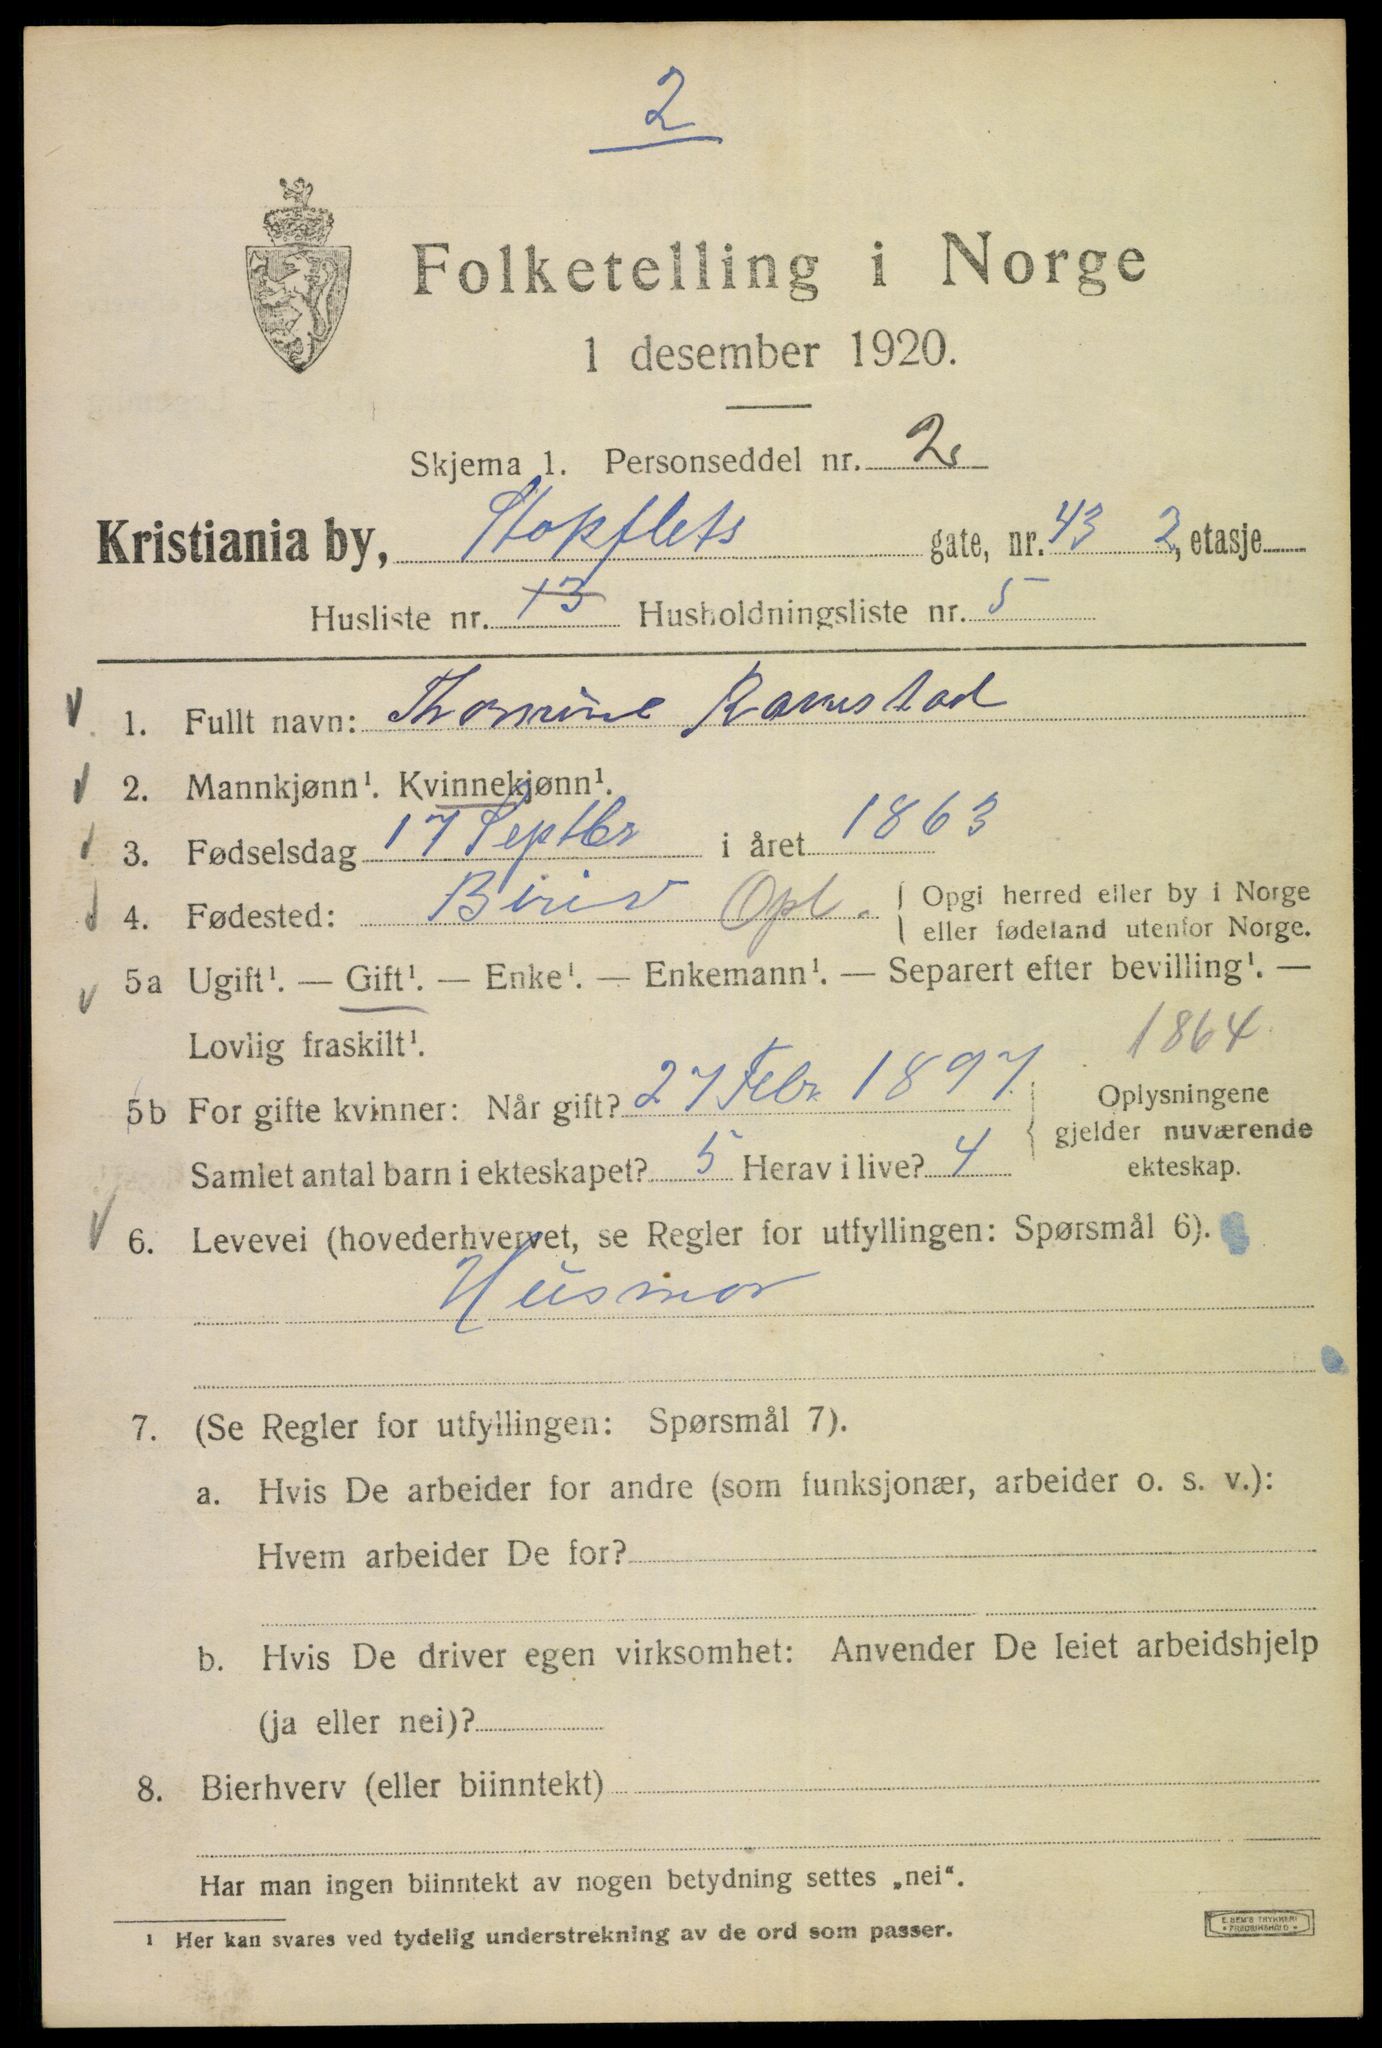 2
Folketelling i Norge
1 desember 1920.
Skjema 1. Personseddel nr. 2
Kristiania by, Stokflets gate, nr. 43 2, etasje
Husliste nr. 13 Husholdningsliste nr. 5
1. Fullt navn: Thomine Ramstad
2. Mannkjønn¹. Kvinnekjønn¹.
3. Fødselsdag 17 Septbr i året 1863
4. Fødested: Biri Opl. Opgi herred eller by i Norge
eller fødeland utenfor Norge.
5a Ugift¹. — Gift¹. — Enke¹. — Enkemann¹. — Separert efter bevilling¹. —
Lovlig fraskilt¹.
1864
5b For gifte kvinner: Når gift? 27 Febr. 1897 Oplysningene
gjelder nuværende
Samlet antal barn i ekteskapet? 5 Herav i live? 4 ekteskap.
6. Levevei (hovederhvervet, se Regler for utfyllingen: Spørsmål 6).
Husmor
7. (Se Regler for utfyllingen: Spørsmål 7).
a. Hvis De arbeider for andre (som funksjonær, arbeider o. s. v.):
Hvem arbeider De for?
b. Hvis De driver egen virksomhet: Anvender De leiet arbeidshjelp
(ja eller nei)?
8. Bierhverv (eller biinntekt)
Har man ingen biinntekt av nogen betydning settes „nei“.
¹ Her kan svares ved tydelig understrekning av de ord som passer.
E. SEM'S TRYKKERI
FREDRIKSHALD